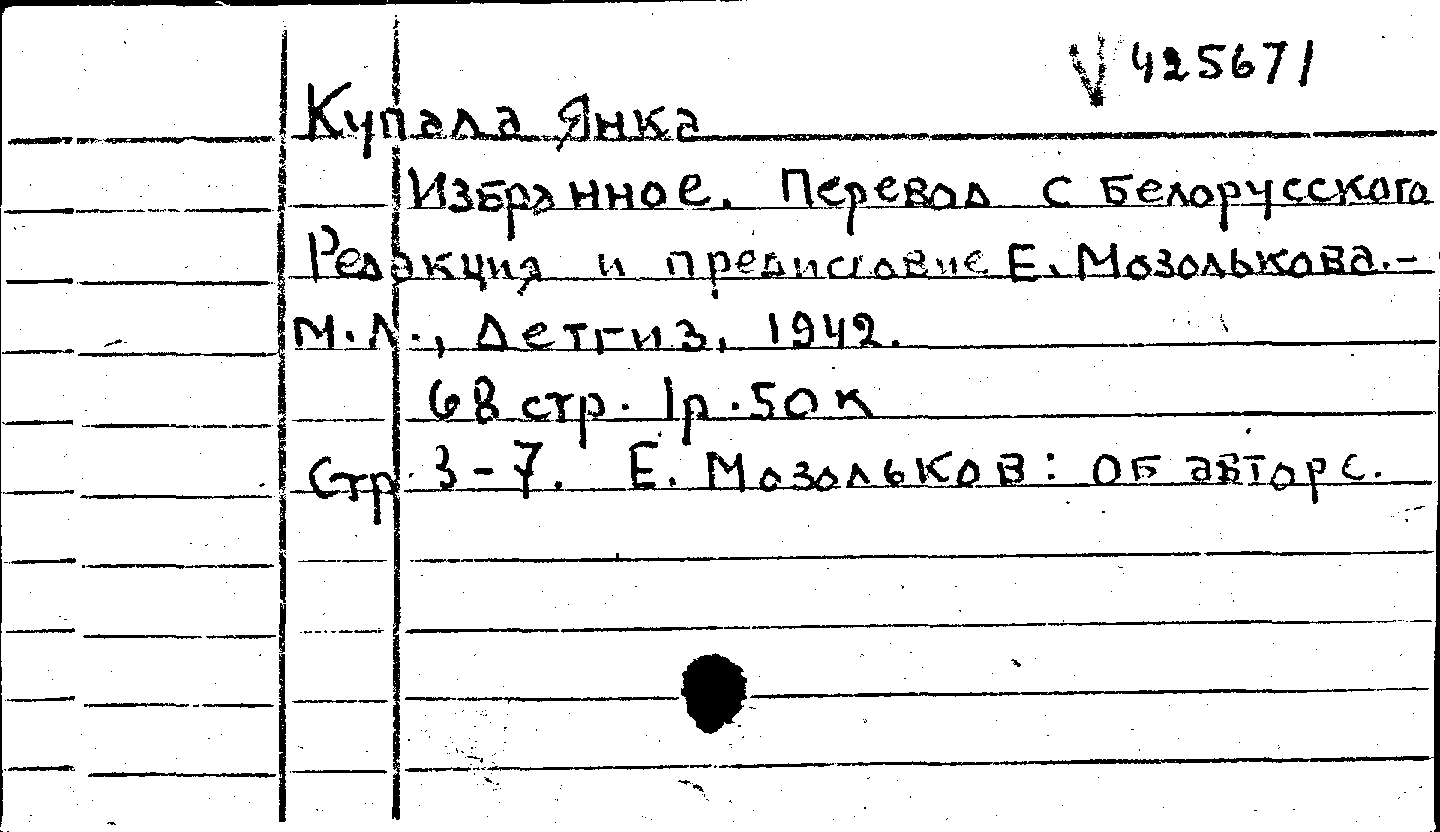 V 425671
Купала Янка
Избранное. Перевод с белорусского
Редакция и предисловие Е. Мозолькова.-
М.Л., Детгиз, 1942.
68 стр. 1р.50к
Стр. 3-7. Е. Мозольков: Об авторе.